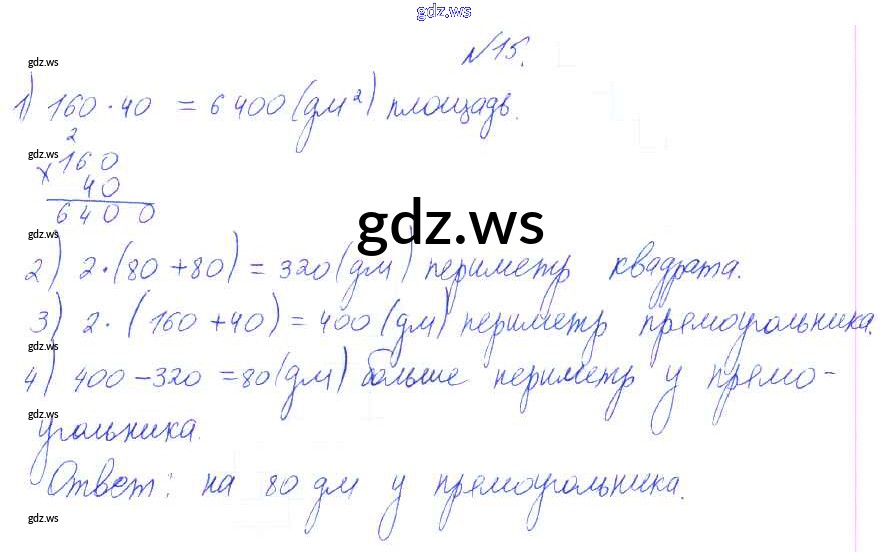 gdz.ws
№15.
gdz.ws
1) 160 · 40 = 6400 (дм²) площадь.
2
gdz.ws
× 160
40
6400
gdz.ws
gdz.ws
2) 2·(80+80) = 320 (дм) периметр квадрата.
3) 2·(160+40) = 400 (дм) периметр прямоугольника.
gdz.ws
4) 400-320 = 80 (дм) больше периметр у прямо-
gdz.ws
угольника.
Ответ: на 80 дм у прямоугольника.
gdz.ws